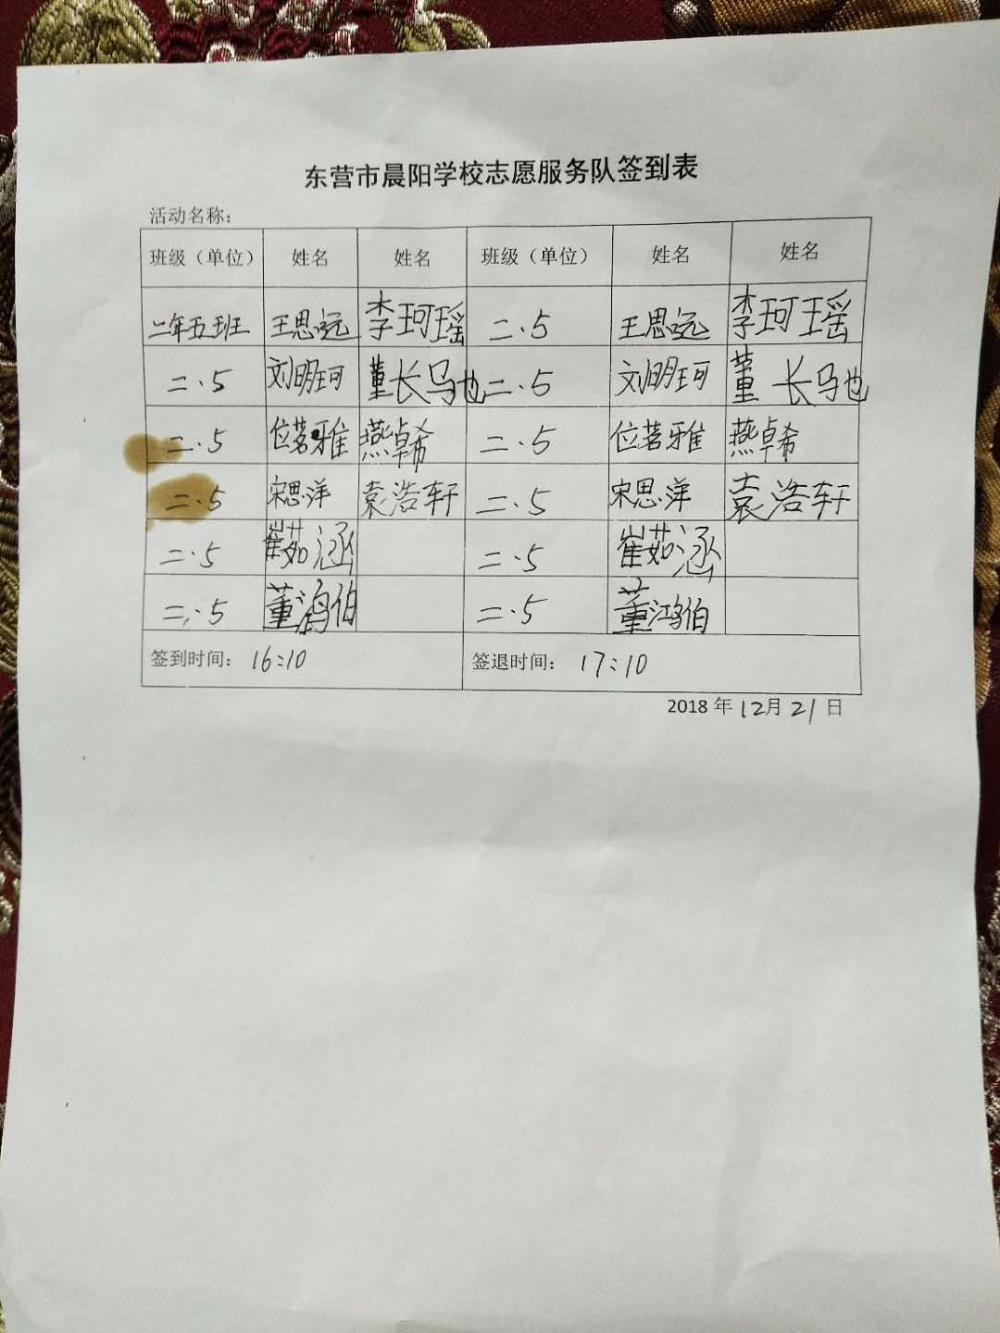 东营市晨阳学校志愿服务队签到表
活动名称：
班级（单位） 姓名 姓名 班级（单位） 姓名 姓名
二年五班 王思远 李珂瑶 二.5 王思远 李珂瑶
二.5 刘明珂 董长驰 二.5 刘明珂 董长驰
二.5 位茗雅 燕卓希 二.5 位茗雅 燕卓希
二.5 宋思萍 袁浩轩 二.5 宋思萍 袁浩轩
二.5 崔茹涵 二.5 崔茹涵
二.5 董鸿伯 二.5 董鸿伯
签到时间： 16:10 签退时间： 17:10
2018 年 12月 21 日